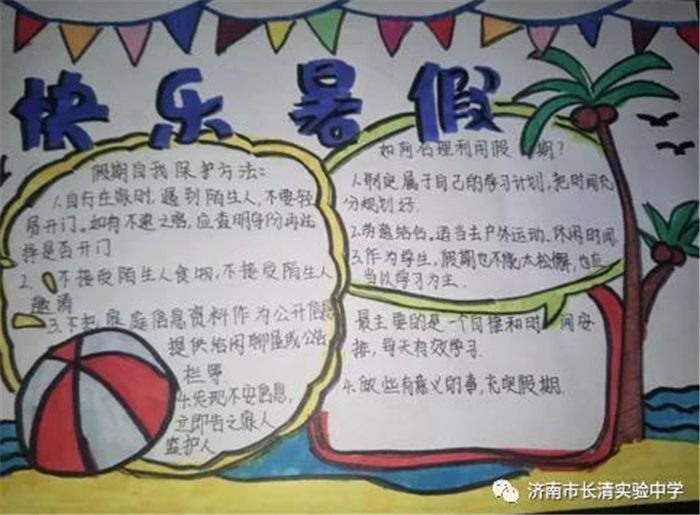 快乐暑假
假期自我保护方法:
1.自存在家时,遇到陌生人,不要轻
易开门。如有不速之客,应查明身份再选
择是否开门
2、不接受陌生人食物,不接受陌生人
邀请
3.不把家庭信息资料作为公开信息
提供给闲聊区或公告
栏等.
4.发现不安信息,
立即告之家人
监护人
如何合理利用假期?
1.制定属于自己的学习计划,把时间充
分规划好.
2.劳逸结合。适当去户外运动、休闲时间.
3.作为学生,假期也不能太松懈,也应
当以学习为主.
最主要的是一个自律和时间安
排,每天有效学习.
4.做些有意义的事,充实假期.
济南市长清实验中学